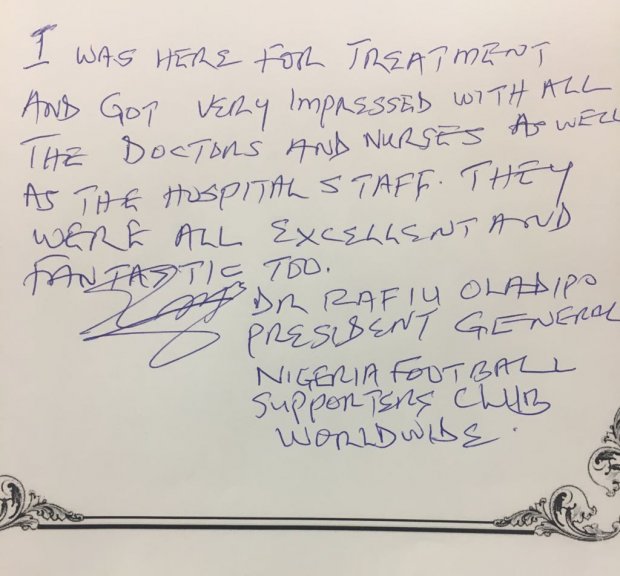 I WAS HERE FOR TREATMENT
AND GOT VERY IMPRESSED WITH ALL
THE DOCTORS AND NURSES AS WELL
AS THE HOSPITAL STAFF. THEY
WERE ALL EXCELLENT AND
FANTASTIC TOO.
DR RAFIU OLADIPO
PRESIDENT GENERAL
NIGERIA FOOTBALL
SUPPORTERS CLUB
WORLDWIDE.